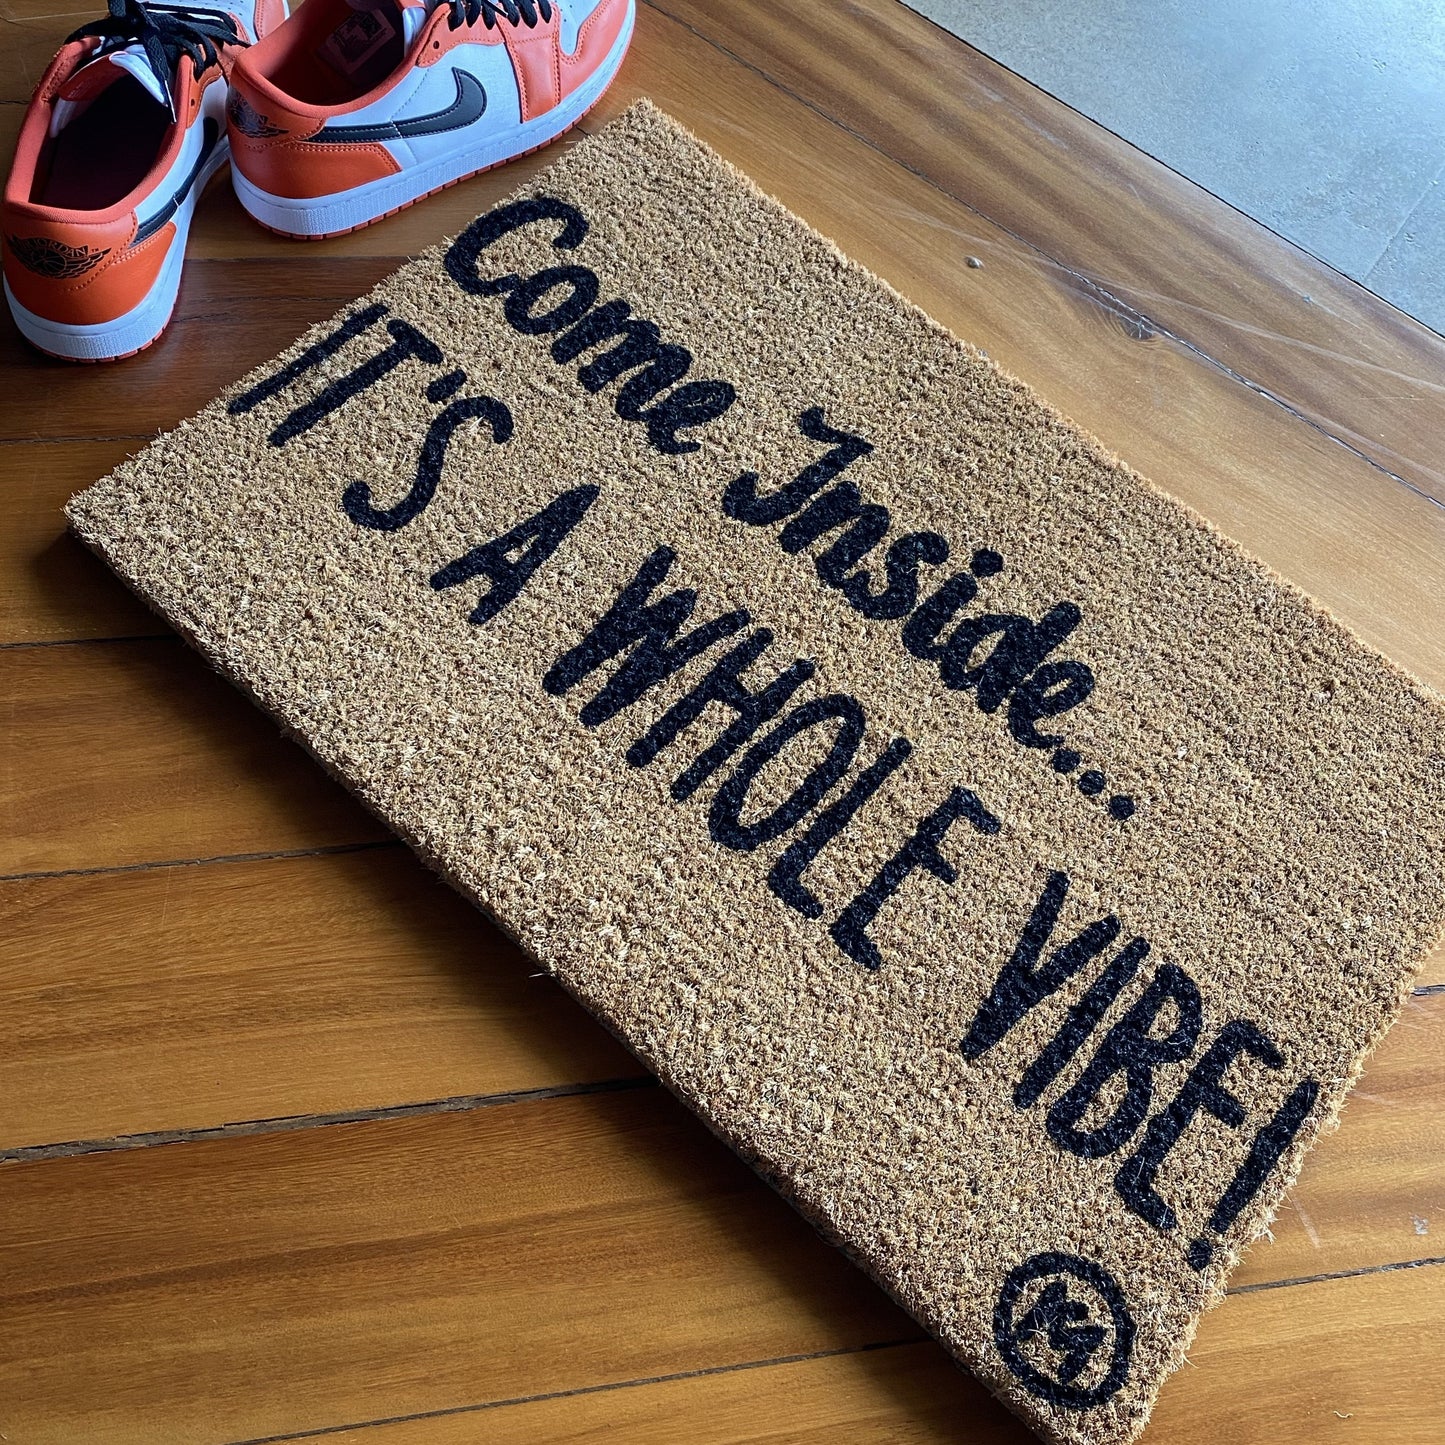 Come Inside...
IT'S A WHOLE VIBE!
M
JORDAN